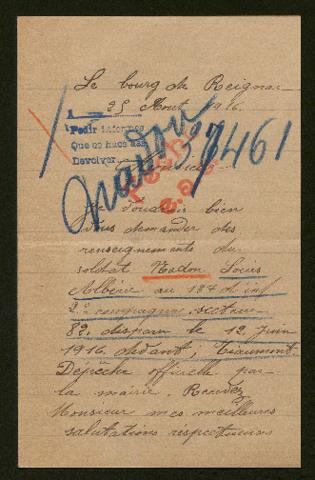 Le bourg de Reignac
25 Aout 1916.
Pedir informes
Que se hace
Devolver
Nadon 37461
Je voudrais bien
vous demander des
renseignements du
soldat Nadon Louis
Albéric au 124 d'inf
2e compagnie secteur
82. disparu le 12 juin
1916 devant, Thiaumont.
Dépêche officielle par
la mairie. Recevez
Monsieur mes meilleures
salutations respectueuses